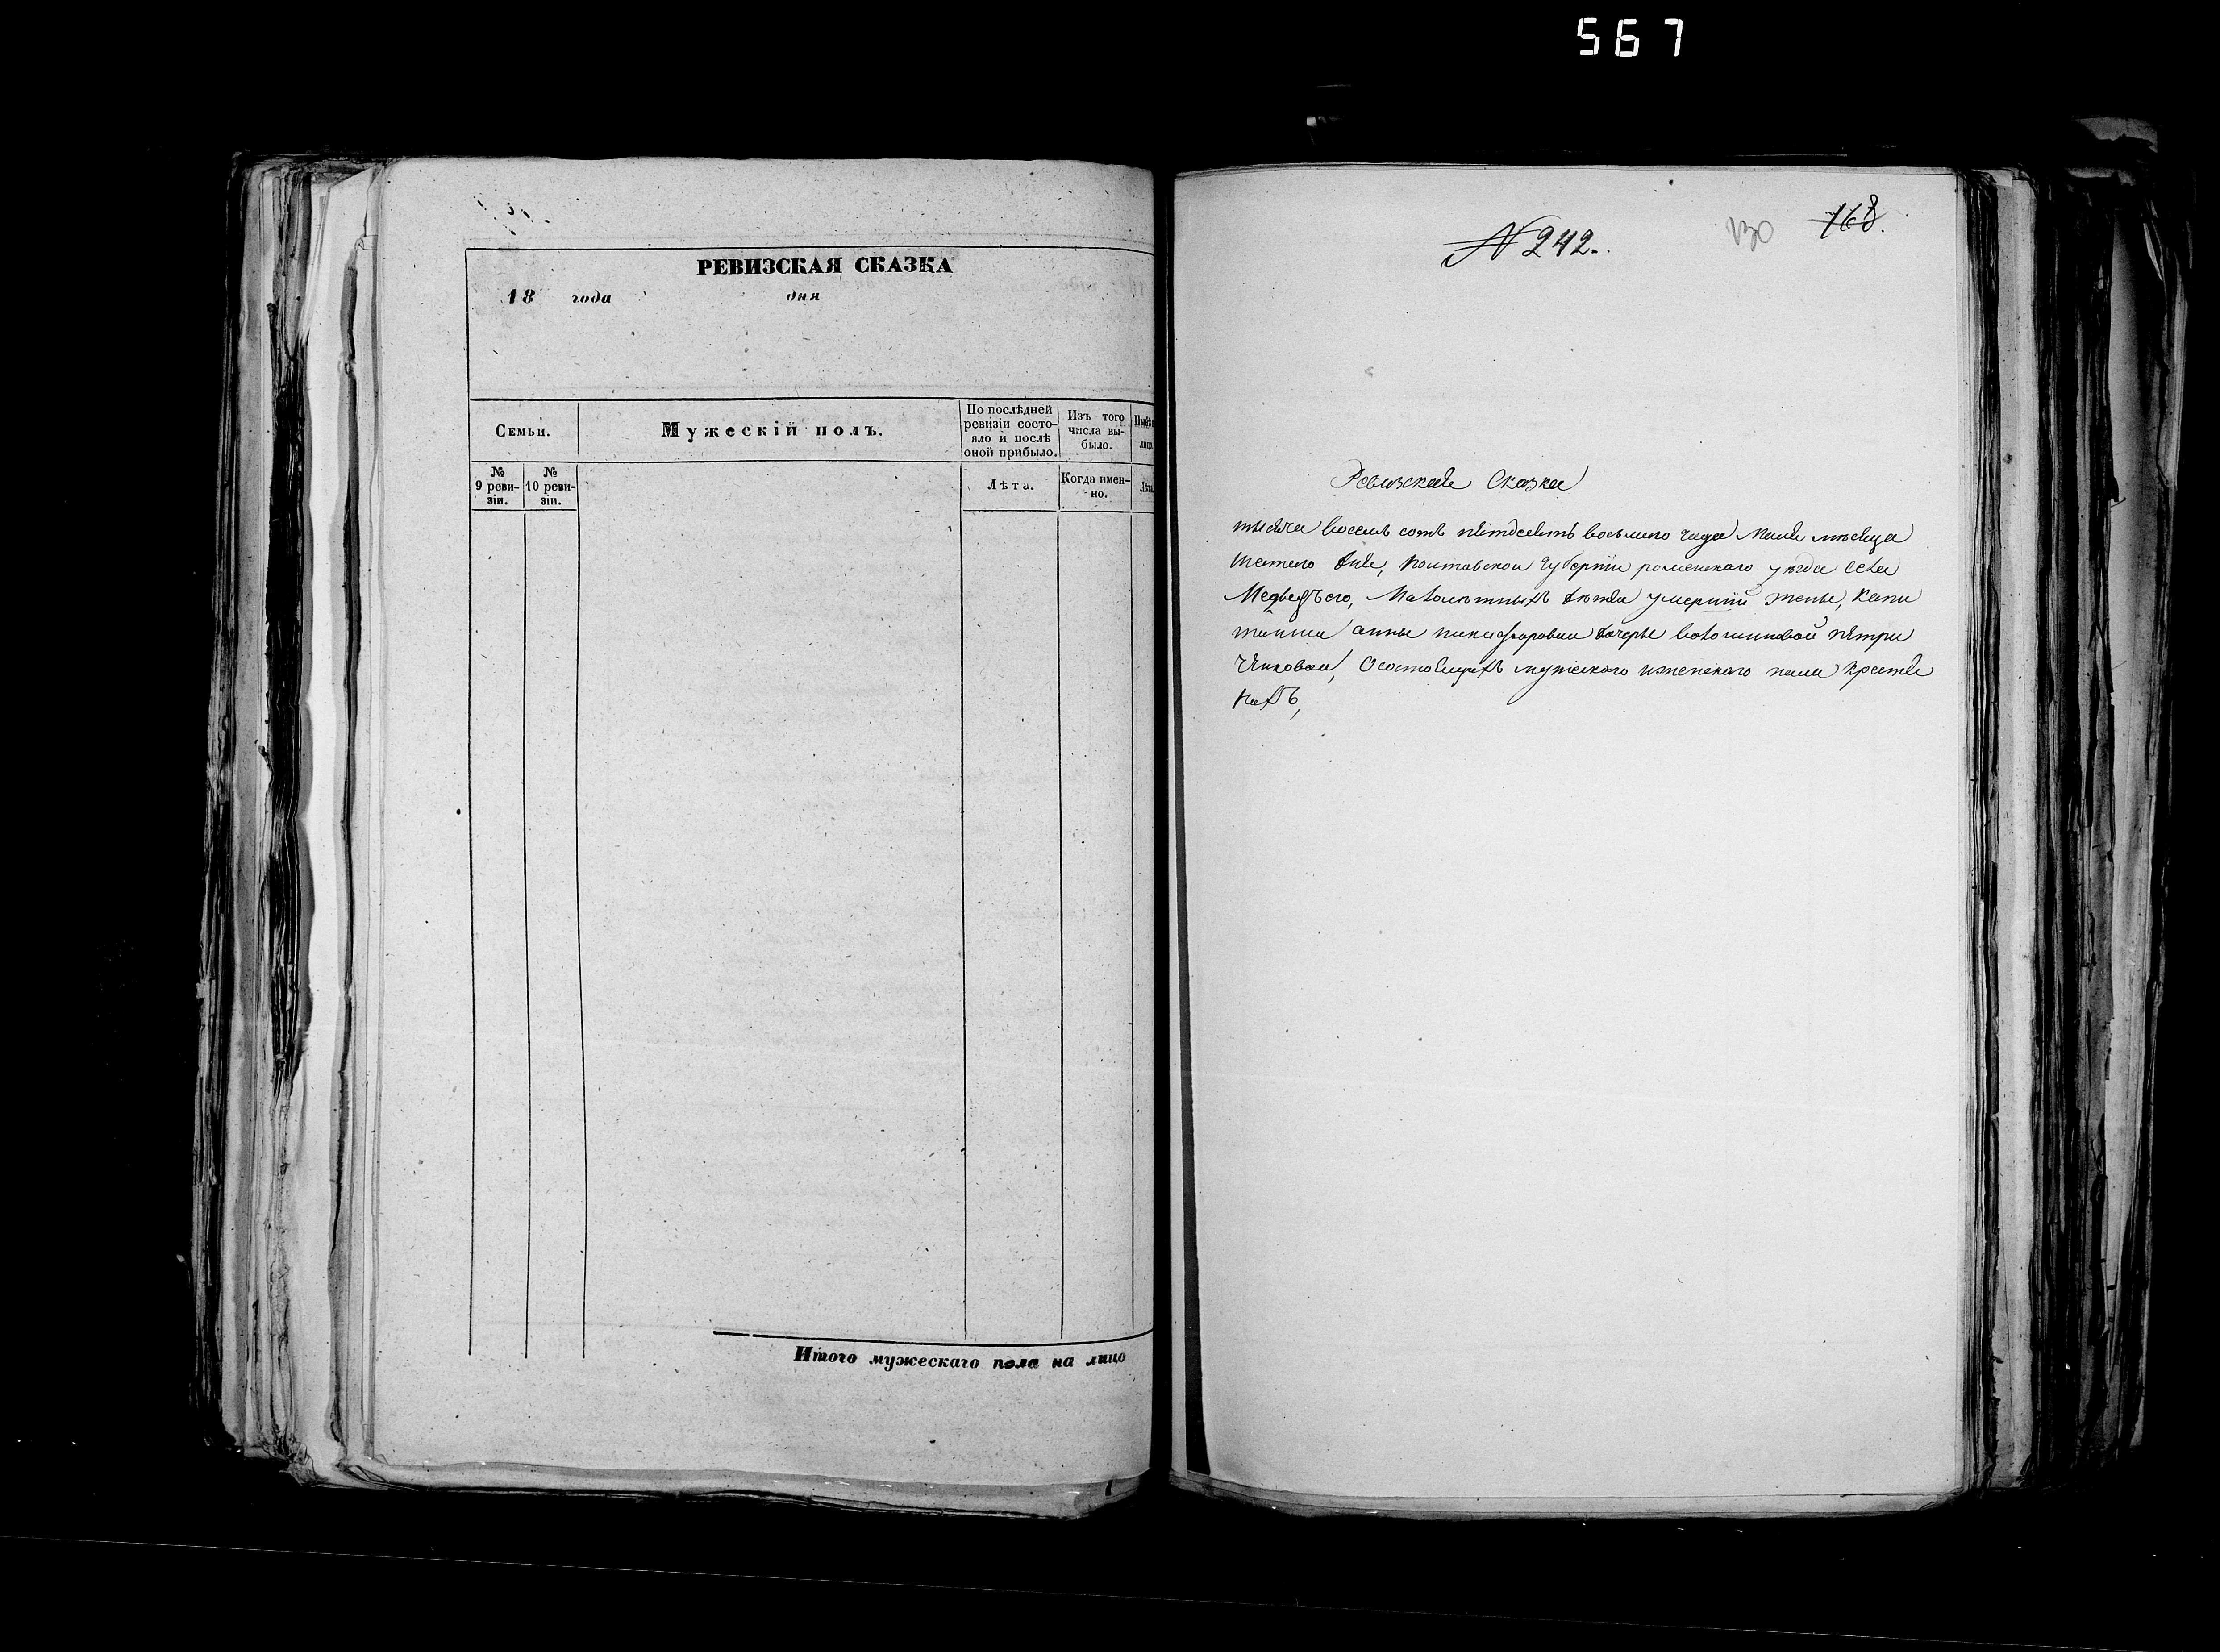 567
РЕВИЗСКАЯ СКАЗКА
18 года дня
Семьи.
Мужескій полъ.
По послѣдней ревизіи состо-
яло и послѣ оной прибыло.
Изъ того числа вы-
было.
№ 9 реви-
зіи.
№ 10 реви-
зіи.
Лѣта.
Когда имен-
но.
Итого мужескаго пола на лицо
N 242.
130
168.
Ревизская Сказка
тысяча восемь сотъ пятдесятъ восьмого года маия мѣсяца
шестого дня, полтавской губерніи роменскаго уѣзда села
Медвежъего, Малолѣтныхъ дѣтей умершій жены, капи
танши анны никифоровны дочеры волошиновой пѣтри
чѣнковой, Осостоящихъ мужескаго иженскаго пола крестя
нахъ,